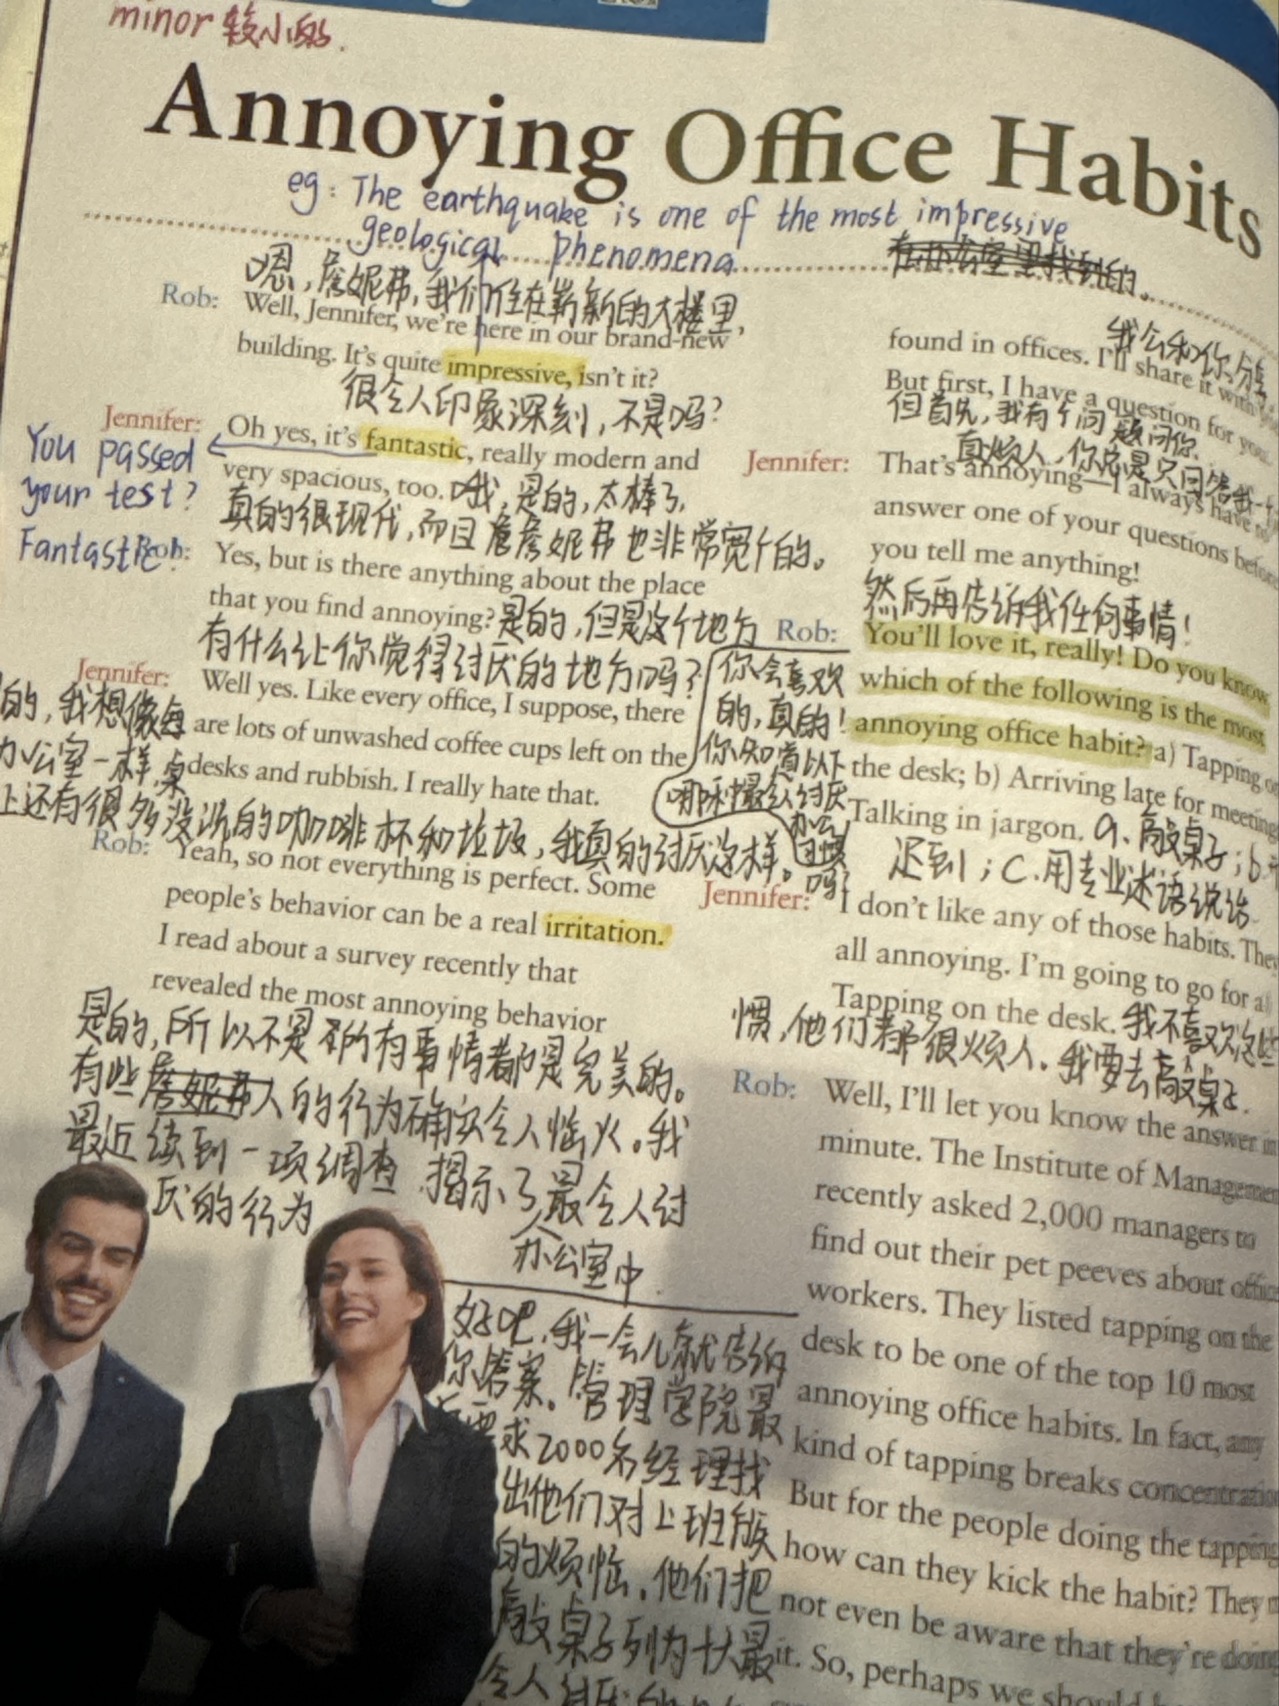 minor 较小的.
Annoying Office Habits
eg: The earthquake is one of the most impressive
geological phenomena
嗯,詹妮弗,我们住在崭新的大楼里,
Rob: Well, Jennifer, we're here in our brand-new
building. It's quite impressive, isn't it?
很令人印象深刻,不是吗?
Jennifer: Oh yes, it's fantastic, really modern and
very spacious, too. 哦,是的,太棒了,
真的很现代,而且詹詹妮弗也非常宽个的。
You passed
your test?
Fantastic
Rob: Yes, but is there anything about the place
that you find annoying? 是的,但是这个地方
有什么让你觉得讨厌的地方吗?
Jennifer: Well yes. Like every office, I suppose, there
are lots of unwashed coffee cups left on the
desks and rubbish. I really hate that.
的,我想像每
办公室一样,桌
上还有很多没洗的咖啡杯和垃圾,我真的讨厌这样。
Rob: Yeah, so not everything is perfect. Some
people's behavior can be a real irritation.
I read about a survey recently that
revealed the most annoying behavior
是的,所以不是所有事情都是完美的。
有些人的行为确实令人恼火。我
最近读到一项调查,揭示了最令人讨
厌的行为
办公室中
found in offices. I'll share it with you.
我会和你分享
But first, I have a question for you.
但首先,我有个问题问你.
真烦人,你总是只回答我一
Jennifer: That's annoying—I always have to
answer one of your questions before
you tell me anything!
然后再告诉我任何事情!
Rob: You'll love it, really! Do you know
which of the following is the most
annoying office habit? a) Tapping on
the desk; b) Arriving late for meeting
Talking in jargon. a. 敲桌子;b.
迟到;C.用专业术语说话
你会喜欢
的,真的!
你知道以下
哪种最令人讨厌
办公
吗?
Jennifer: I don't like any of those habits. They
all annoying. I'm going to go for a)
Tapping on the desk. 我不喜欢这些
惯,他们都很烦人。我要去敲桌子.
Rob: Well, I'll let you know the answer in
minute. The Institute of Management
recently asked 2,000 managers to
find out their pet peeves about office
workers. They listed tapping on the
desk to be one of the top 10 most
annoying office habits. In fact, any
kind of tapping breaks concentration
But for the people doing the tapping
how can they kick the habit? They
not even be aware that they're doing
it. So, perhaps we should
好吧,我一会儿就告诉
你答案。管理学院最
要求2000名经理找
出他们对上班族
的烦恼,他们把
敲桌子列为十大最
令人讨厌的